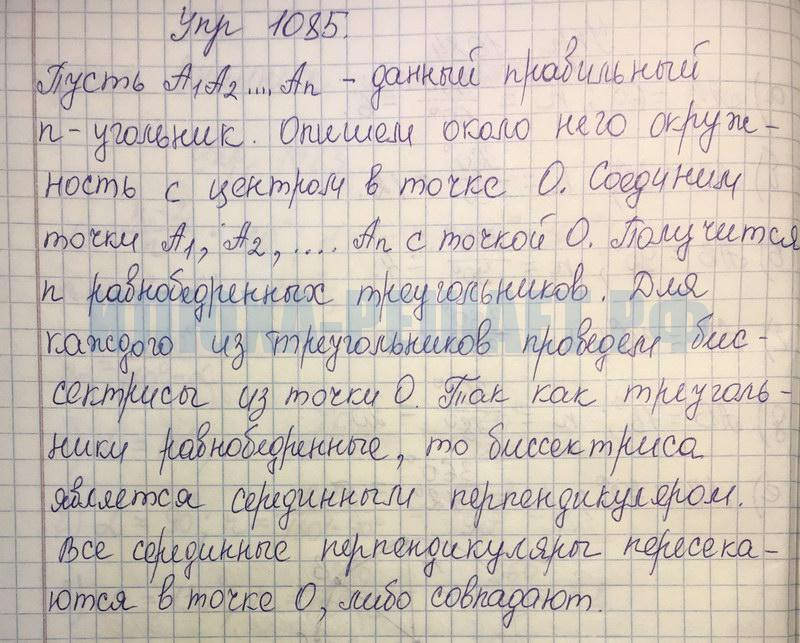 Упр 1085.
Пусть A₁A₂.... Aₙ - данный правильный
n-угольник. Опишем около него окруж-
ность с центром в точке O. Соединим
точки A₁, A₂, .... Aₙ с точкой O. Получится
n равнобедренных треугольников. Для
каждого из треугольников проведем бис-
сектрисы из точки O. Так как треуголь-
ники равнобедренные, то биссектриса
является серединным перпендикуляром.
Все серединные перпендикуляры пересека-
ются в точке O, либо совпадают.